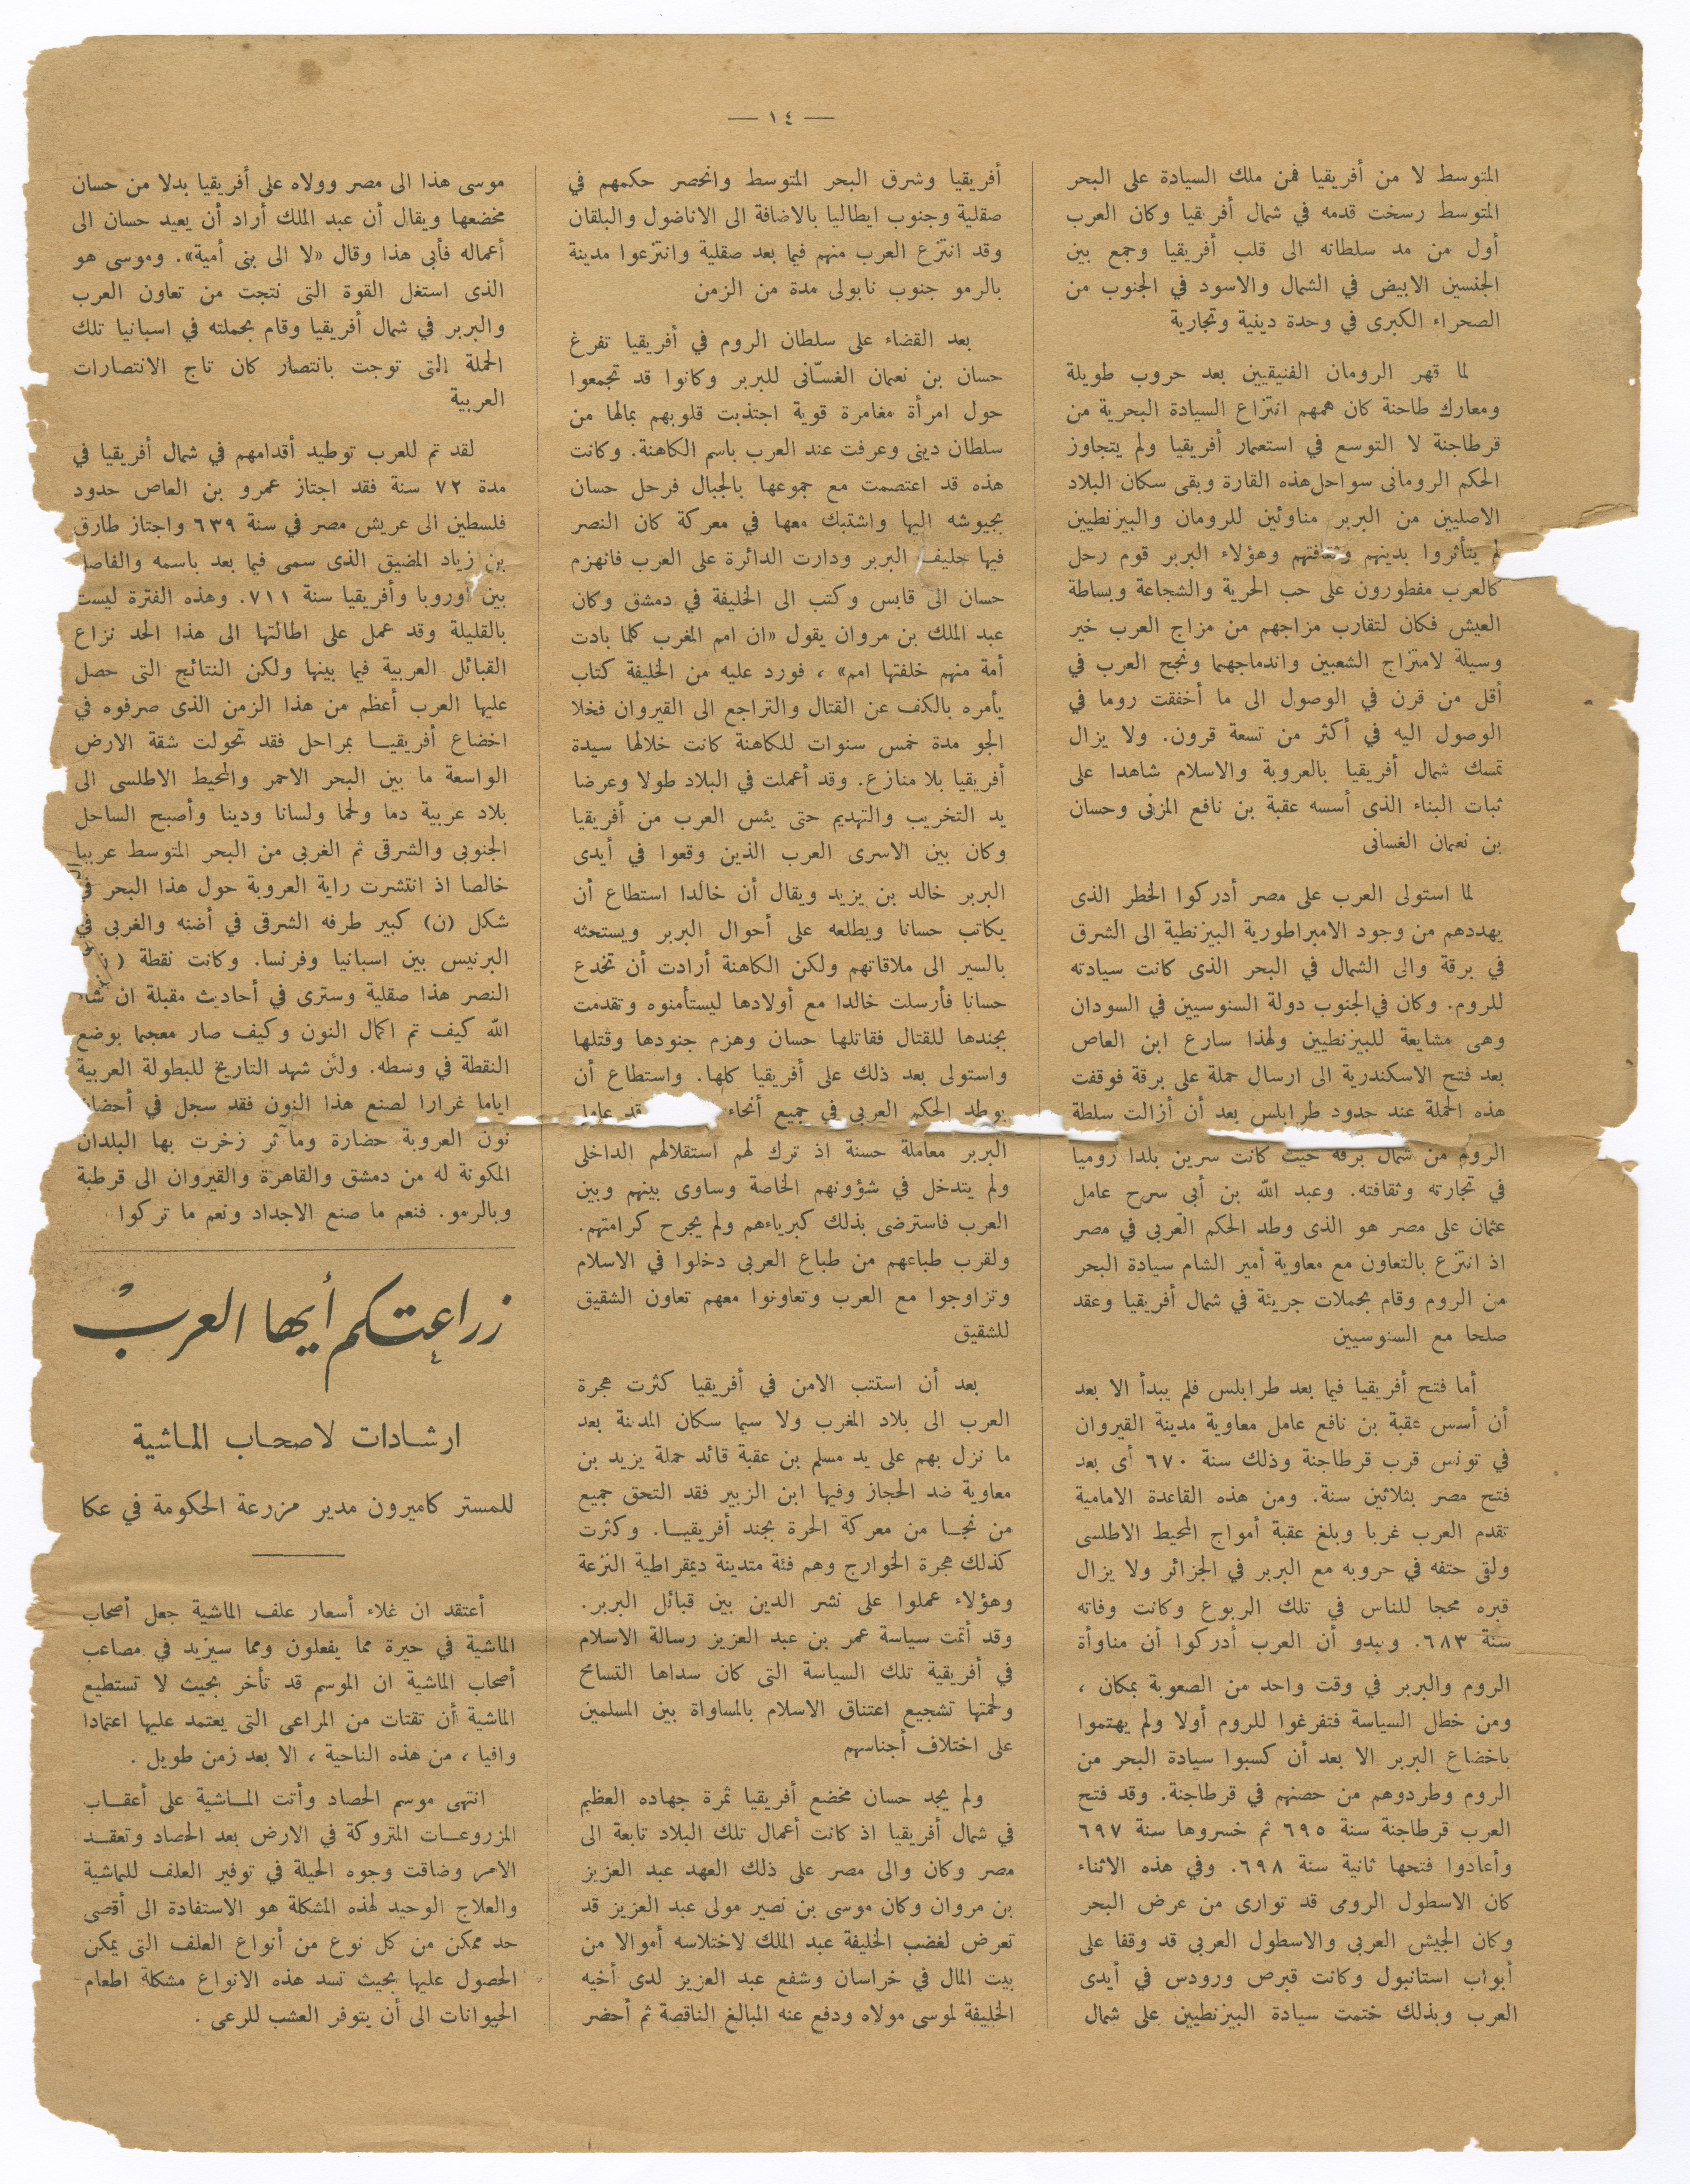 — ١٤ —
المتوسط لا من أفريقيا فمن ملك السيادة على البحر
المتوسط رسخت قدمه في شمال أفريقيا وكان العرب
أول من مد سلطانه الى قلب أفريقيا وجمع بين
الجنسين الابيض في الشمال والاسود في الجنوب من
الصحراء الكبرى في وحدة دينية وتجارية
لما قهر الرومان الفنيقيين بعد حروب طويلة
ومعارك طاحنة كان همهم انتزاع السيادة البحرية من
قرطاجنة لا التوسع في استعمار أفريقيا ولم يتجاوز
الحكم الرومانى سواحل هذه القارة وبقى سكان البلاد
الاصليين من البربر مناوئين للرومان والبيزنطيين
لم يتأثروا بدينهم وثقافتهم وهؤلاء البربر قوم رحل
كالعرب مفطورون على حب الحرية والشجاعة وبساطة
العيش فكان لتقارب مزاجهم من مزاج العرب خير
وسيلة لامتزاج الشعبين واندماجهما ونجح العرب في
أقل من قرن في الوصول الى ما أخفقت روما في
الوصول اليه في أكثر من تسعة قرون. ولا يزال
تمسك شمال أفريقيا بالعروبة والاسلام شاهدا على
ثبات البناء الذى أسسه عقبة بن نافع المزنى وحسان
بن نعمان الغسانى
لما استولى العرب على مصر أدركوا الخطر الذى
يهددهم من وجود الامبراطورية البيزنطية الى الشرق
في برقة والى الشمال في البحر الذى كانت سيادته
للروم. وكان في الجنوب دولة السنوسيين في السودان
وهى مشايعة للبيزنطيين ولهذا سارع ابن العاص
بعد فتح الاسكندرية الى ارسال حملة على برقة فوقفت
هذه الحملة عند حدود طرابلس بعد أن أزالت سلطة
الروم من شمال برقة حيث كانت سرين بلدا روميا
في تجارته وثقافته. وعبد الله بن أبي سرح عامل
عثمان على مصر هو الذى وطد الحكم العربي في مصر
اذ انتزع بالتعاون مع معاوية أمير الشام سيادة البحر
من الروم وقام بحملات جريئة في شمال أفريقيا وعقد
صلحا مع السنوسيين
أما فتح أفريقيا فيما بعد طرابلس فلم يبدأ الا بعد
أن أسس عقبة بن نافع عامل معاوية مدينة القيروان
في تونس قرب قرطاجنة وذلك سنة ٦٧٠ أى بعد
فتح مصر بثلاثين سنة. ومن هذه القاعدة الامامية
تقدم العرب غربا وبلغ عقبة أمواج المحيط الاطلسى
ولقى حتفه في حروبه مع البربر في الجزائر ولا يزال
قبره محجا للناس في تلك الربوع وكانت وفاته
سنة ٦٨٣. ويبدو أن العرب أدركوا أن مناوأة
الروم والبربر في وقت واحد من الصعوبة بمكان ،
ومن خطل السياسة فتفرغوا للروم أولا ولم يهتموا
باخضاع البربر الا بعد أن كسبوا سيادة البحر من
الروم وطردوهم من حصنهم في قرطاجنة. وقد فتح
العرب قرطاجنة سنة ٦٩٥ ثم خسروها سنة ٦٩٧
وأعادوا فتحها ثانية سنة ٦٩٨. وفي هذه الاثناء
كان الاسطول الرومى قد توارى من عرض البحر
وكان الجيش العربي والاسطول العربي قد وقفا على
أبواب استانبول وكانت قبرص ورودس في أيدى
العرب وبذلك ختمت سيادة البيزنطيين على شمال
أفريقيا وشرق البحر المتوسط وانحصر حكمهم في
صقلية وجنوب ايطاليا بالاضافة الى الاناضول والبلقان
وقد انتزع العرب منهم فيما بعد صقلية وانتزعوا مدينة
بالرمو جنوب نابولى مدة من الزمن
بعد القضاء على سلطان الروم في أفريقيا تفرغ
حسان بن نعمان الغسّانى للبربر وكانوا قد تجمعوا
حول امرأة مغامرة قوية اجتذبت قلوبهم بمالها من
سلطان دينى وعرفت عند العرب باسم الكاهنة. وكانت
هذه قد اعتصمت مع جموعها بالجبال فرحل حسان
بجيوشه اليها واشتبك معها في معركة كان النصر
فيها حليف البربر ودارت الدائرة على العرب فانهزم
حسان الى قابس وكتب الى الخليفة في دمشق وكان
عبد الملك بن مروان يقول «ان امم المغرب كلما بادت
أمة منهم خلفتها امم» ، فورد عليه من الخليفة كتاب
يأمره بالكف عن القتال والتراجع الى القيروان فخلا
الجو مدة خمس سنوات للكاهنة كانت خلالها سيدة
أفريقيا بلا منازع. وقد أعملت في البلاد طولا وعرضا
يد التخريب والتهديم حتى يئس العرب من أفريقيا
وكان بين الاسرى العرب الذين وقعوا في أيدى
البربر خالد بن يزيد ويقال أن خالدا استطاع أن
يكاتب حسانا ويطلعه على أحوال البربر ويستحثه
بالسير الى ملاقاتهم ولكن الكاهنة أرادت أن تخدع
حسانا فأرسلت خالدا مع أولادها ليستأمنوه وتقدمت
بجندها للقتال فقاتلها حسان وهزم جنودها وقتلها
واستولى بعد ذلك على أفريقيا كلها. واستطاع أن
يوطد الحكم العربي في جميع أنحاء قد عامل
البربر معاملة حسنة اذ ترك لهم استقلالهم الداخلى
ولم يتدخل في شؤونهم الخاصة وساوى بينهم وبين
العرب فاسترضى بذلك كبرياءهم ولم يجرح كرامتهم.
ولقرب طباعهم من طباع العربى دخلوا في الاسلام
وتزاوجوا مع العرب وتعاونوا معهم تعاون الشقيق
للشقيق
بعد أن استتب الامن في أفريقيا كثرت هجرة
العرب الى بلاد المغرب ولا سيما سكان المدينة بعد
ما نزل بهم على يد مسلم بن عقبة قائد حملة يزيد بن
معاوية ضد الحجاز وفيها ابن الزبير فقد التحق جميع
من نجا من معركة الحرة بجند أفريقيا. وكثرت
كذلك هجرة الخوارج وهم فئة متدينة ديمقراطية النزعة
وهؤلاء عملوا على نشر الدين بين قبائل البربر.
وقد أتمت سياسة عمر بن عبد العزيز رسالة الاسلام
في أفريقية تلك السياسة التى كان سداها التسامح
ولحمتها تشجيع اعتناق الاسلام بالمساواة بين المسلمين
على اختلاف أجناسهم
ولم يجد حسان مخضع أفريقيا ثمرة جهاده العظيم
في شمال أفريقيا اذ كانت أعمال تلك البلاد تابعة الى
مصر وكان والى مصر على ذلك العهد عبد العزيز
بن مروان وكان موسى بن نصير مولى عبد العزيز قد
تعرض لغضب الخليفة عبد الملك لاختلاسه أموالا من
بيت المال في خراسان وشفع عبد العزيز لدى أخيه
الخليفة لموسى مولاه ودفع عنه المبالغ الناقصة ثم أحضر
موسى هذا الى مصر وولاه على أفريقيا بدلا من حسان
مخضعها ويقال أن عبد الملك أراد أن يعيد حسان الى
أعماله فأبى هذا وقال «لا الى بنى أمية». وموسى هو
الذى استغل القوة التى نتجت من تعاون العرب
والبربر في شمال أفريقيا وقام بحملته في اسبانيا تلك
الحملة التى توجت بانتصار كان تاج الانتصارات
العربية
لقد تم للعرب توطيد أقدامهم في شمال أفريقيا في
مدة ٧٢ سنة فقد اجتاز عمرو بن العاص حدود
فلسطين الى عريش مصر في سنة ٦٣٩ واجتاز طارق
بن زياد المضيق الذى سمى فيما بعد باسمه والفاصل
بين أوروبا وأفريقيا سنة ٧١١. وهذه الفترة ليست
بالقليلة وقد عمل على اطالتها الى هذا الحد نزاع
القبائل العربية فيما بينها ولكن النتائج التى حصل
عليها العرب أعظم من هذا الزمن الذى صرفوه في
اخضاع أفريقيا بمراحل فقد تحولت شقة الارض
الواسعة ما بين البحر الاحمر والمحيط الاطلسى الى
بلاد عربية دما ولحما ولسانا ودينا وأصبح الساحل
الجنوبى والشرقى ثم الغربى من البحر المتوسط عربيا
خالصا اذ انتشرت راية العروبة حول هذا البحر في
شكل (ن) كبير طرفه الشرقى في أضنه والغربى في
البرنيس بين اسبانيا وفرنسا. وكانت نقطة
النصر هذا صقلية وسترى في أحاديث مقبلة ان شاء
الله كيف تم اكمال النون وكيف صار معجما بوضع
النقطة في وسطه. ولئن شهد التاريخ للبطولة العربية
اياما غرارا لصنع هذا النون فقد سجل في أحضان
نون العروبة حضارة ومآثر زخرت بها البلدان
المكونة له من دمشق والقاهرة والقيروان الى قرطبة
وبالرمو. فنعم ما صنع الاجداد ونعم ما تركوا
زراعتكم أيها العرب
ارشادات لاصحاب الماشية
للمستر كاميرون مدير مزرعة الحكومة في عكا
أعتقد ان غلاء أسعار علف الماشية جعل أصحاب
الماشية في حيرة مما يفعلون ومما سيزيد في مصاعب
أصحاب الماشية ان الموسم قد تأخر بحيث لا تستطيع
الماشية أن تقتات من المراعى التى يعتمد عليها اعتمادا
وافيا ، من هذه الناحية ، الا بعد زمن طويل .
انتهى موسم الحصاد وأتت الماشية على أعقاب
المزروعات المتروكة في الارض بعد الحصاد وتعقد
الامر وضاقت وجوه الحيلة في توفير العلف للماشية
والعلاج الوحيد لهذه المشكلة هو الاستفادة الى أقصى
حد ممكن من كل نوع من أنواع العلف التى يمكن
الحصول عليها بحيث تسد هذه الانواع مشكلة اطعام
الحيوانات الى أن يتوفر العشب للرعى .